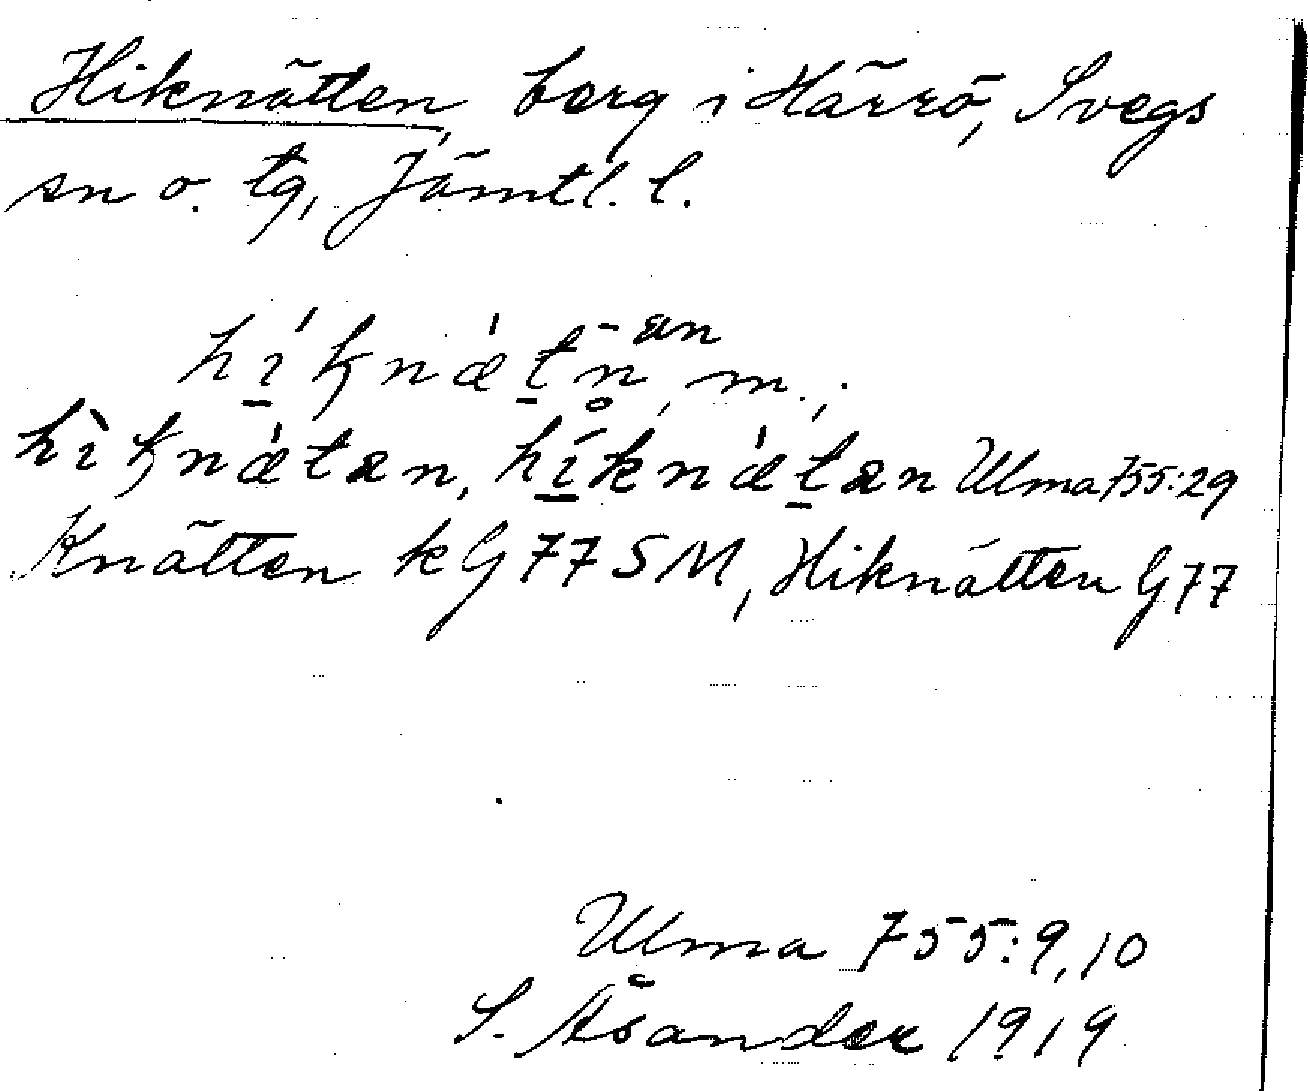 Hiknätten, berg i Härrö, Svegs
sn o. tg, Jämtl. l.
hı̱́ꝁnæ̀ṯn̥̄, -ən m.;
hìꝁnæ̀tən, hı̱́knæ̀ṯən Ulma 755:29
Knätten kG 77 SM, Hiknätten G 77
Ulma 755:9,10
S. Åsander 1919